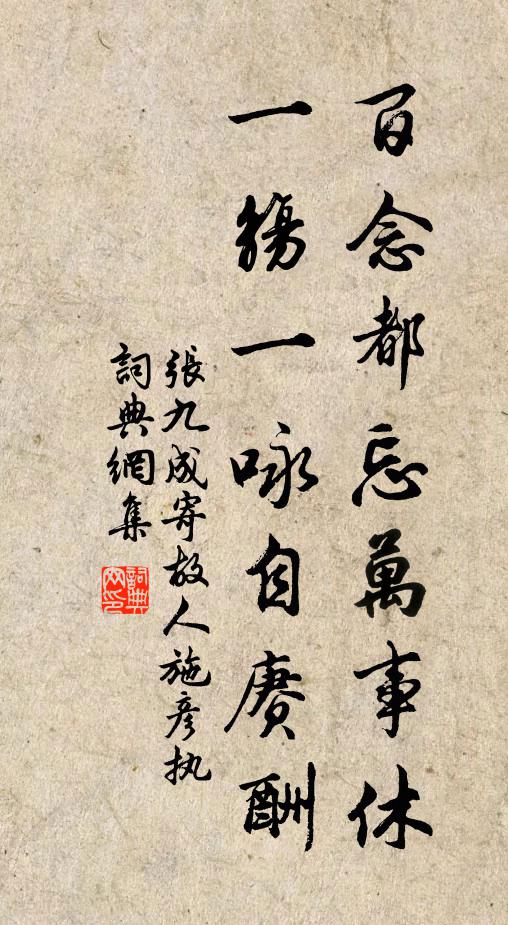 百念都忘萬事休
一觴一咏自賡酬
張九成寄故人施彦执
詞典網集
詞典網印